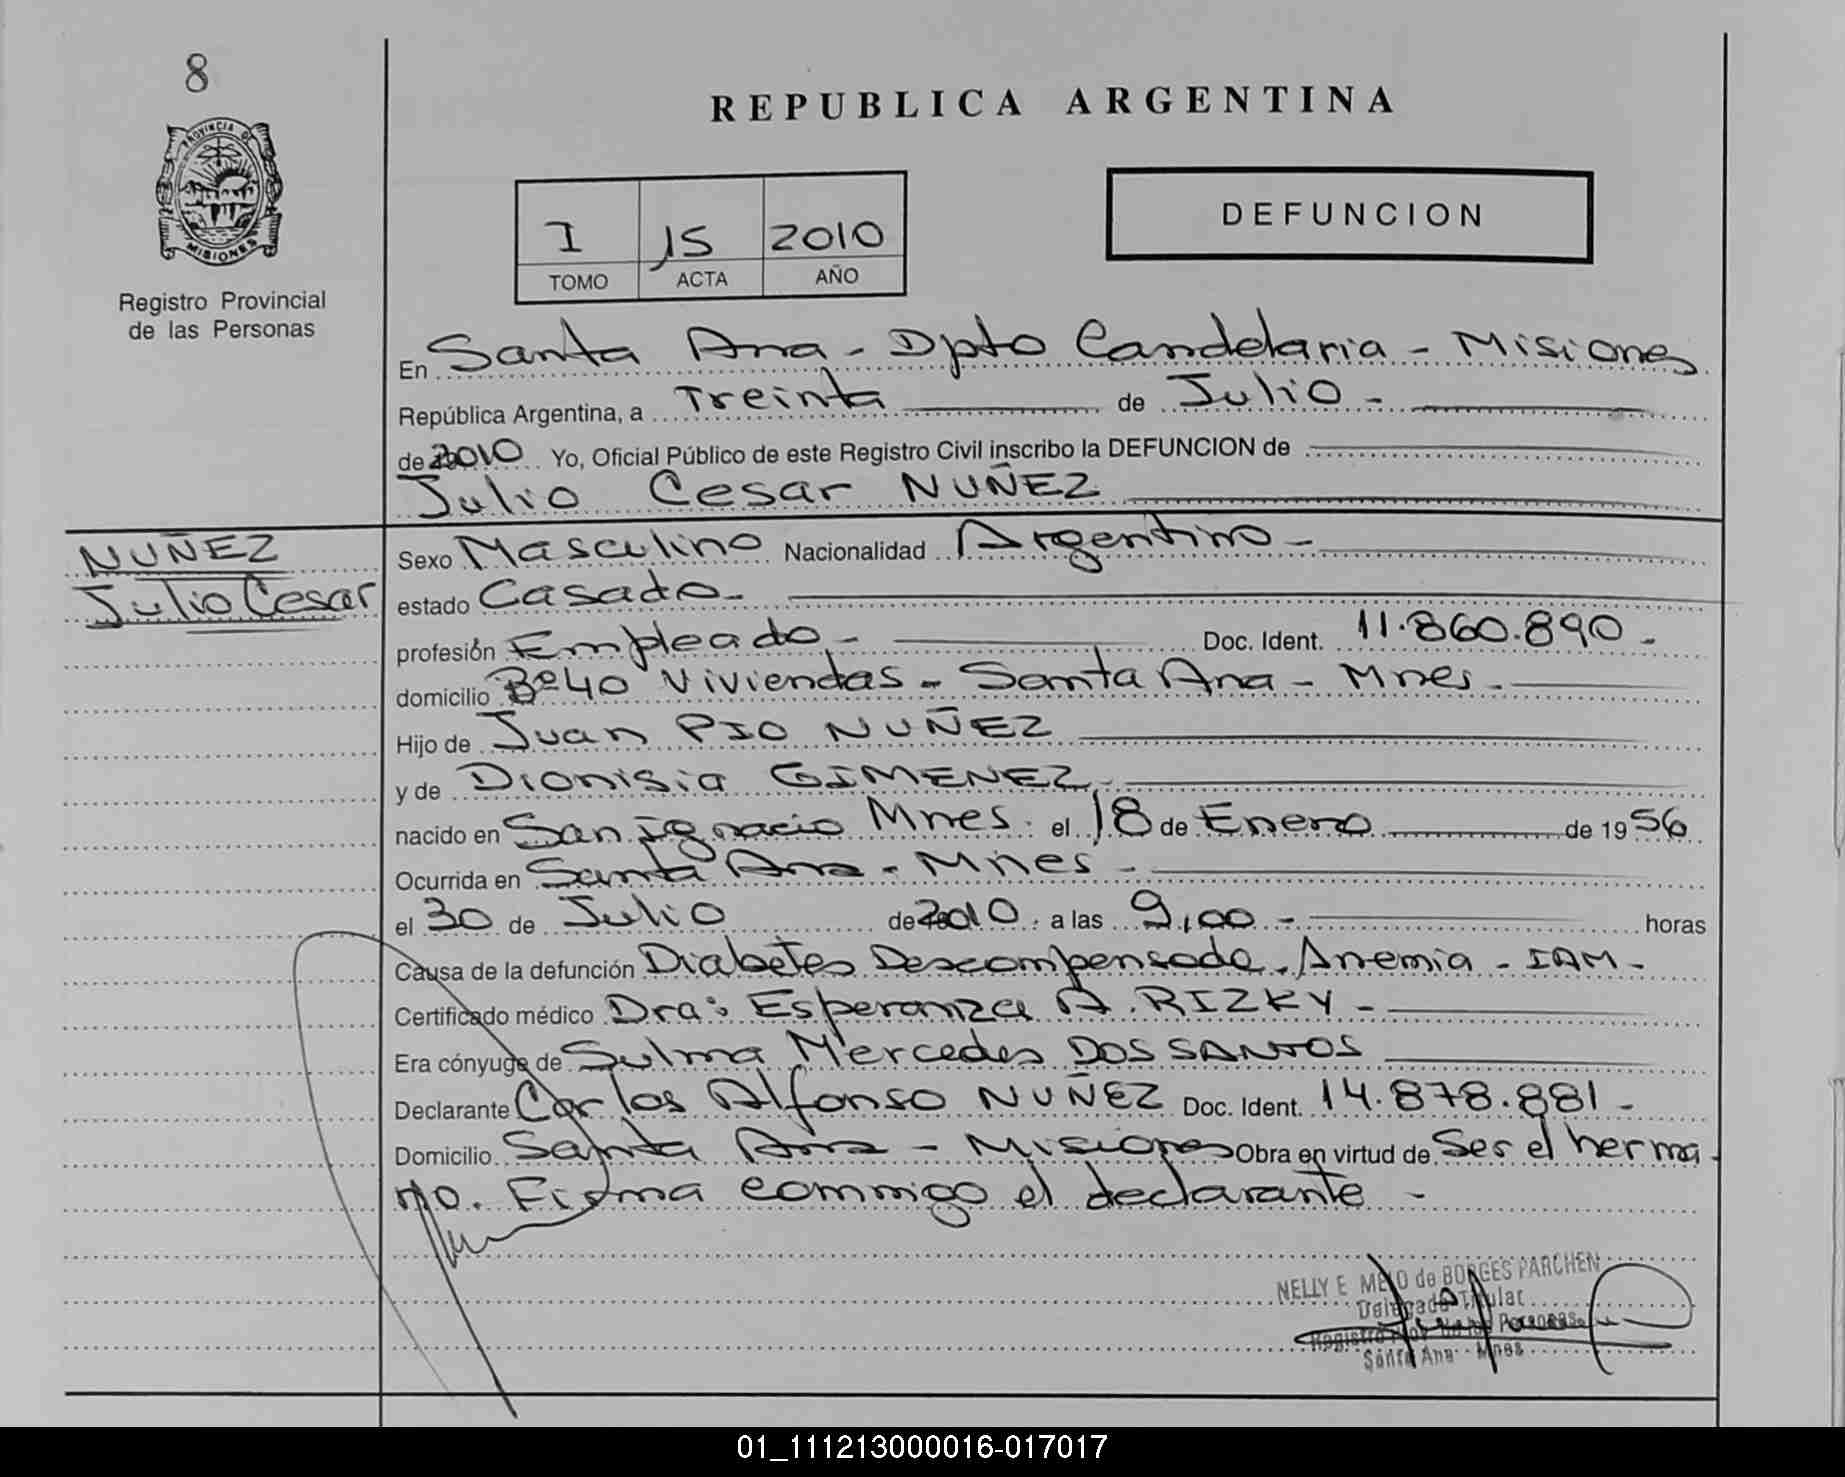 8
PROVINCIA DE
MISIONES
Registro Provincial
de las Personas
REPUBLICA ARGENTINA
I 15 2010
TOMO ACTA AÑO
DEFUNCION
En Santa Ana - Dpto Candelaria - Misiones
República Argentina, a Treinta de Julio -
de 2010 Yo, Oficial Público de este Registro Civil inscribo la DEFUNCION de
Julio Cesar NUÑEZ
NUÑEZ
Julio Cesar
Sexo Masculino Nacionalidad Argentino -
estado Casado -
profesión Empleado - Doc. Ident. 11.860.890 -
domicilio Bº 40 Viviendas - Santa Ana - Mnes -
Hijo de Juan PIO NUÑEZ
y de Dionisia GIMENEZ
nacido en San Ignacio Mnes. el 18 de Enero de 1956
Ocurrida en Santa Ana - Mnes -
el 30 de Julio de 2010. a las 9,00 - horas
Causa de la defunción Diabetes Descompensada. Anemia - IAM -
Certificado médico Dra: Esperanza A. RIZKY -
Era cónyuge de Sulma Mercedes DOS SANTOS
Declarante Carlos Alfonso NUÑEZ Doc. Ident. 14.878.881 -
Domicilio Santa Ana - Misiones Obra en virtud de Ser el herma
no. Firma commigo el declarante -
NELLY E. MELO de BORGES PARCHEN
Delegada Titular
Registro Prov. de las Personas
Santa Ana - Mnes
01_111213000016-017017